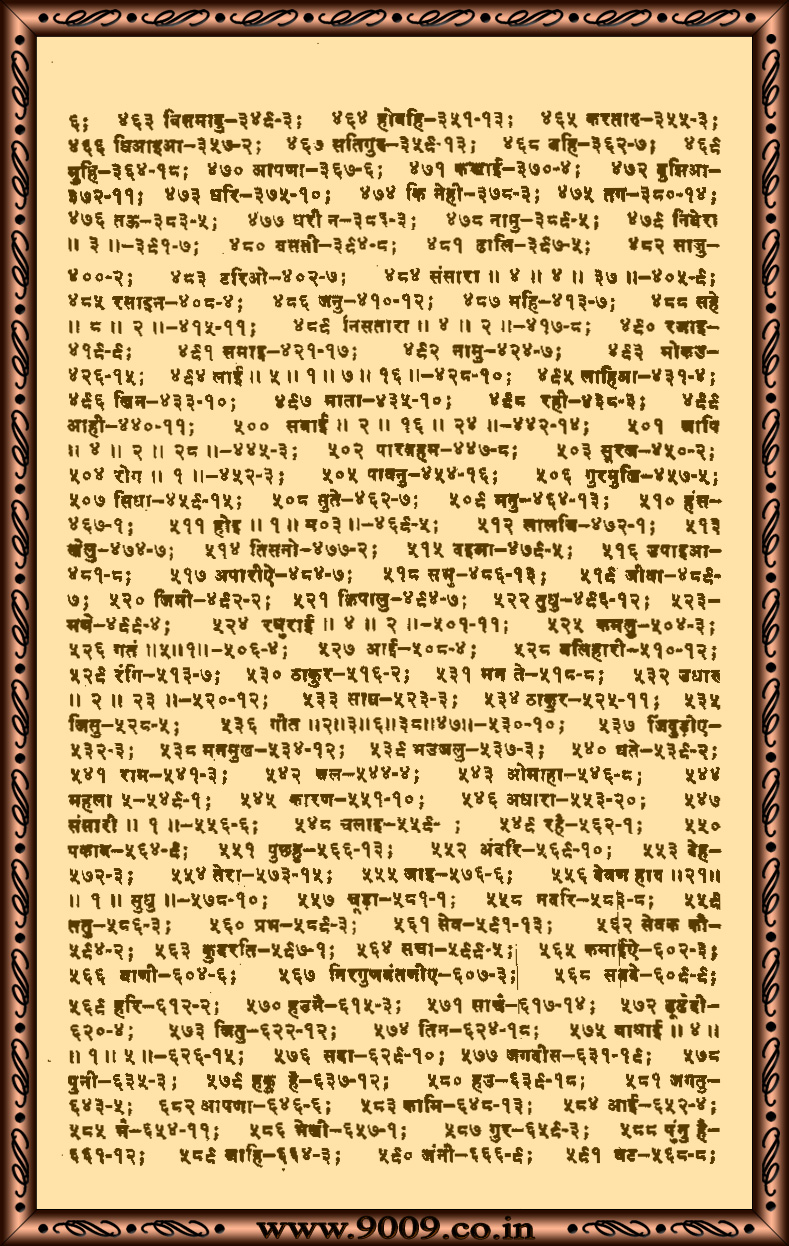 ६; ४६३ बिसमादु–३४९-३; ४६४ होवहि–३५१-१३; ४६५ करतारु–३५५-३;
४६६ धिआइआ–३५७-२; ४६७ सतिगुर–३५९-१३; ४६८ बहि–३६२-७; ४६९
मुहि–३६४-१८; ४७० आपणा–३६७-६; ४७१ कखाई–३७०-४; ४७२ बुझिआ–
३७२-११; ४७३ धरि–३७५-१०; ४७४ कि नेही–३७८-३; ४७५ तग–३८०-१४;
४७६ तऊ–३८३-५; ४७७ धरी न–३८६-३; ४७८ नामु–३८९-५; ४७९ निबेरा
॥ ३ ॥–३९१-७; ४८० बसतो–३९४-८; ४८१ ढालि–३९७-५; ४८२ साजु–
४००-२; ४८३ टरिओ–४०२-७; ४८४ संसारा ॥ ४ ॥ ४ ॥ ३७ ॥–४०५-९;
४८५ रसाइन–४०८-४; ४८६ जनु–४१०-१२; ४८७ महि–४१३-७; ४८८ सहे
॥ ८ ॥ २ ॥–४१५-११; ४८९ निसतारा ॥ ४ ॥ २ ॥–४१७-८; ४९० रजाइ–
४१९-९; ४९१ समाइ–४२१-१७; ४९२ नामु–४२४-७; ४९३ मोकउ–
४२६-१५; ४९४ लाई ॥ ५ ॥ १ ॥ ७ ॥ १६ ॥–४२८-१०; ४९५ लाहिआ–४३१-४;
४९६ खिन–४३३-१०; ४९७ माता–४३५-१०; ४९८ रही–४३८-३; ४९९
आही–४४०-११; ५०० सबाई ॥ २ ॥ १६ ॥ २४ ॥–४४२-१४; ५०१ जापि
॥ ४ ॥ २ ॥ २८ ॥–४४५-३; ५०२ पारब्रहम–४४७-८; ५०३ सूरज–४५०-२;
५०४ रोग ॥ १ ॥–४५२-३; ५०५ पावनु–४५४-१६; ५०६ गुरमुखि–४५७-५;
५०७ सिधा–४५९-१५; ५०८ सुते–४६२-७; ५०९ मतु–४६४-१३; ५१० हंस–
४६७-१; ५११ होइ ॥ १ ॥ म०३ ॥–४६९-५; ५१२ लालचि–४७२-१; ५१३
खेलु–४७४-७; ५१४ तिसनो–४७७-२; ५१५ वइआ–४७९-५; ५१६ उपाइआ–
४८१-८; ५१७ अपारीऐ–४८४-७; ५१८ सभु–४८६-१३; ५१९ जीवा–४८९-
७; ५२० जिमी–४९२-२; ५२१ क्रिपालु–४९४-७; ५२२ तुधु–४९६-१२; ५२३–
मथे–४९९-४; ५२४ रघुराई ॥ ४ ॥ २ ॥–५०१-११; ५२५ कमलु–५०४-३;
५२६ गतं ॥५॥१॥–५०६-४; ५२७ आई–५०८-४; ५२८ बलिहारी–५१०-१२;
५२९ रंगि–५१३-७; ५३० ठाकुर–५१६-२; ५३१ मन ते–५१८-८; ५३२ उधारु
॥ २ ॥ २३ ॥–५२०-१२; ५३३ साध–५२३-३; ५३४ ठाकुर–५२५-११; ५३५
जितु–५२८-५; ५३६ गीत ॥२॥३॥६॥३८॥४७॥–५३०-१०; ५३७ जिंदुड़ीए–
५३२-३; ५३८ मनमुख–५३४-१२; ५३९ भउजलु–५३७-३; ५४० घते–५३९-२;
५४१ राम–५४१-३; ५४२ चल–५४४-४; ५४३ ओमाहा–५४६-८; ५४४
महला ५–५४९-१; ५४५ कारण–५५१-१०; ५४६ अधारा–५५३-२०; ५४७
संसारी ॥ १ ॥–५५६-६; ५४८ चलाइ–५५९- ; ५४९ रहै–५६२-१; ५५०
पकाब–५६४-९; ५५१ पुछहु–५६६-१३; ५५२ अंदरि–५६९-१०; ५५३ देह–
५७२-३; ५५४ तेरा–५७३-१५; ५५५ जाइ–५७६-६; ५५६ देवण हारु ॥२१॥
॥ १ ॥ सुधु ॥–५७८-१०; ५५७ चूड़ा–५८१-१; ५५८ नदरि–५८३-८; ५५९
ततु–५८६-३; ५६० प्रभ–५८९-३; ५६१ सेव–५९१-१३; ५६२ सेवक कौ–
५९४-२; ५६३ कुदरति–५९७-१; ५६४ सचा–५९९-५; ५६५ कमाईऐ–६०२-३;
५६६ बाणी–६०४-६; ५६७ निरगुणवंतनीए–६०७-३; ५६८ सबदे–६०९-९;
५६९ हरि–६१२-२; ५७० हउमै–६१५-३; ५७१ साचं–६१७-१४; ५७२ ढूढेदी–
६२०-४; ५७३ जितु–६२२-१२; ५७४ तिन–६२४-१८; ५७५ बाधाई ॥ ४ ॥
॥ १ ॥ ५ ॥–६२६-१५; ५७६ सदा–६२९-१०; ५७७ जगदीस–६३१-१९; ५७८
पुनी–६३५-३; ५७९ हकू है–६३७-१२; ५८० हउ–६३९-१८; ५८१ जगतु–
६४३-५; ६८२ आपणा–६४६-६; ५८३ कामि–६४८-१३; ५८४ आई–६५२-४;
५८५ मै–६५४-११; ५८६ सेखी–६५७-१; ५८७ गुर–६५९-३; ५८८ पंगु है–
६६१-१२; ५८९ जाहि–६६४-३; ५९० अंनी–६६६-९; ५९१ घट–५६८-८;
www.9009.co.in